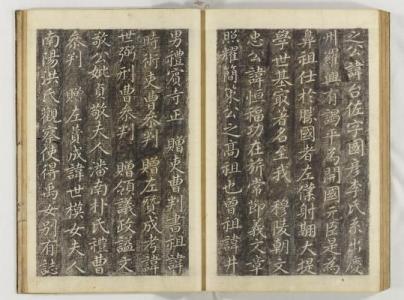 之公諱台佐字國彦李氏系出慶
州羅興有謁平為開國元臣是為
鼻祖仕於勝國者左僕射翮大提
學世基最著名至我 穆陵朝文
忠公諱恒福功在旂常節義文章
照耀簡策公之高祖也曾祖諱井
男禮賓寺正 贈吏曹判書祖諱
時術吏曹參判 贈左贊成考諱
世弼刑曹參判 贈領議政謚文
敬公妣貞敬夫人潘南朴氏禮曹
參判 贈左贊成諱世模女夫人
南陽洪氏觀察使得禹女別有誌